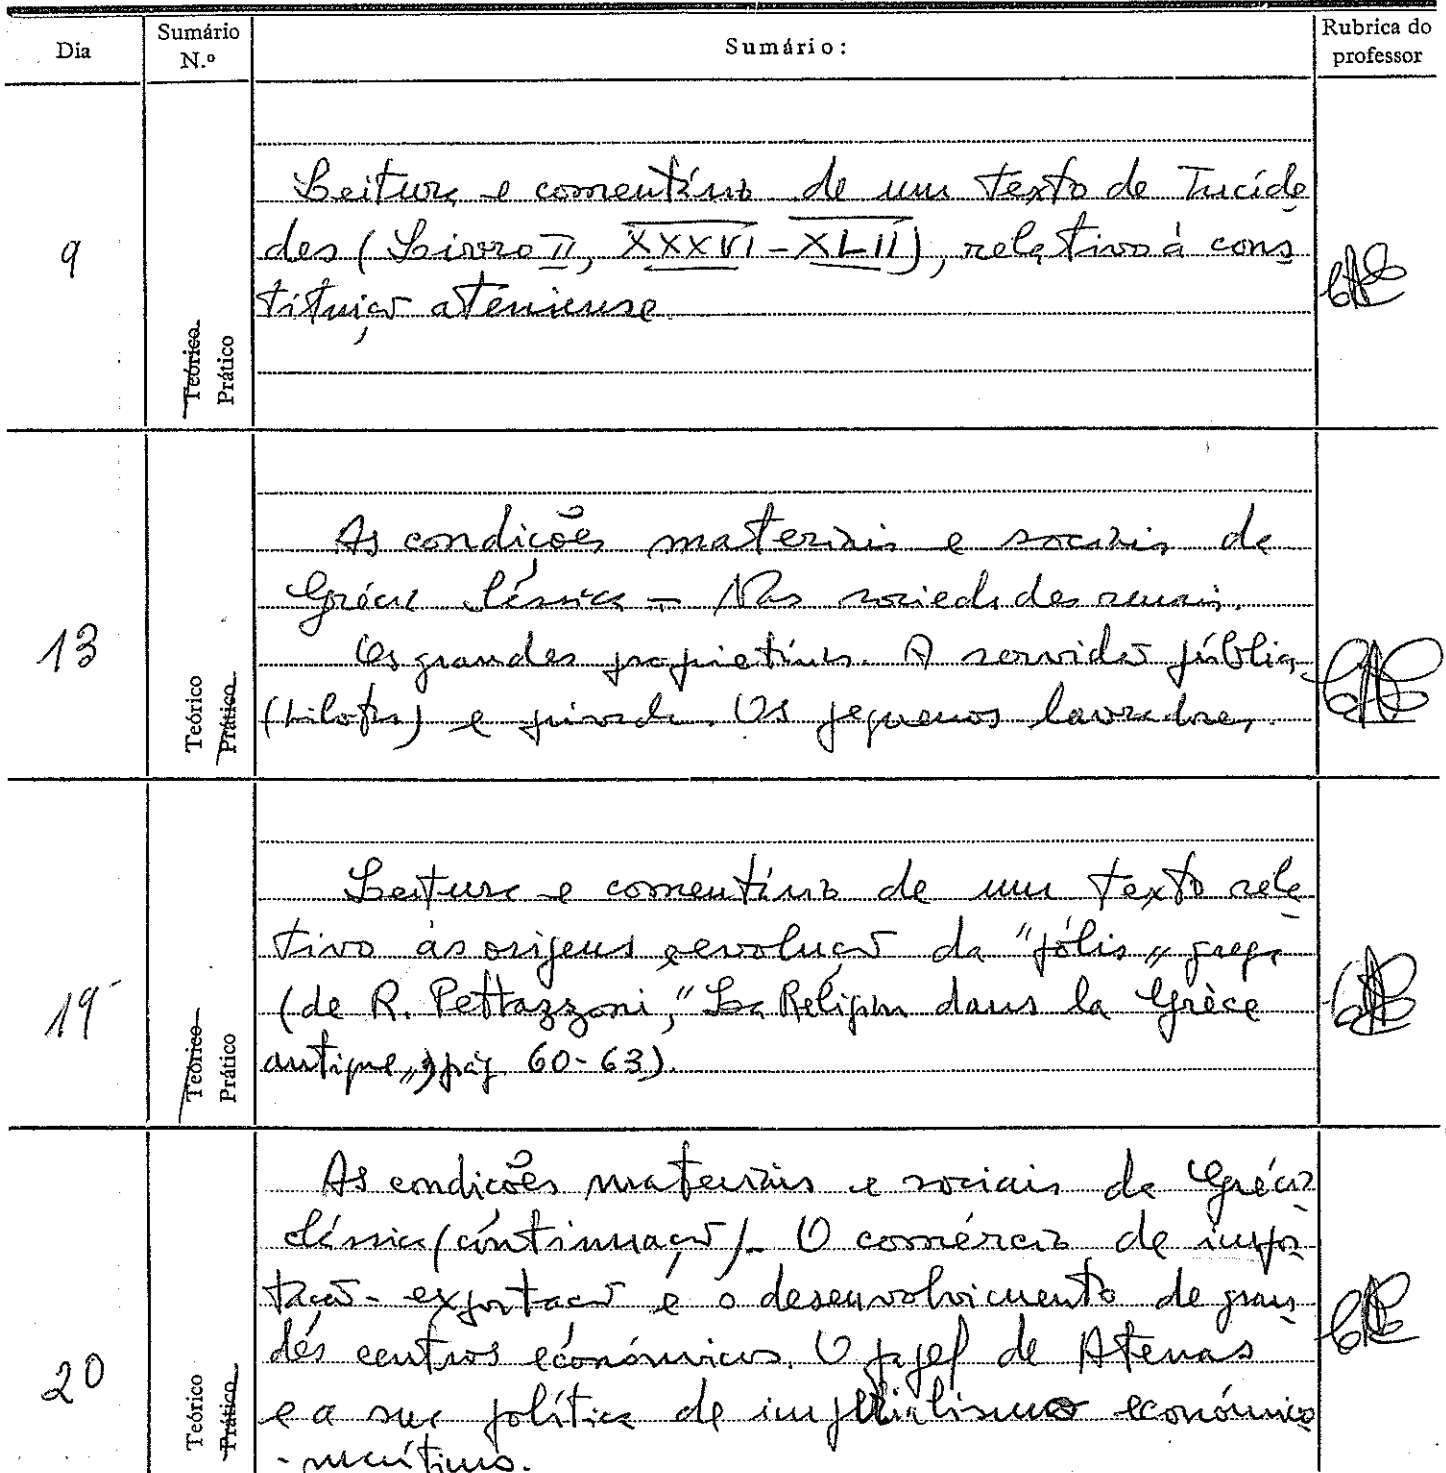 Dia
Sumário N.º
Sumário:
Rubrica do professor
9
Teórico
Prático
Leitura e comentário de um texto de Tucídi
des (Livro II, XXXVI - XLII), relativo à cons
tituição ateniense.
13
Teórico
Prático
As condições materiais e sociais da
Grécia Clássica - Nas sociedades rurais.
Os grandes proprietários. A servidão pública
(hilotas) e privada. Os pequenos lavradores.
19
Teórico
Prático
Leitura e comentário de um texto rela
tivo às origens e evolução da "pólis" grega
(de R. Pettazzoni, "La Religion dans la Grèce
antique", pág. 60-63).
20
Teórico
Prático
As condições materiais e sociais da Grécia
clássica (continuação). O comércio de impor
tação - exportação e o desenvolvimento de gran
des centros económicos. O papel de Atenas
e a sua política de imperialismo económico
- marítimo.